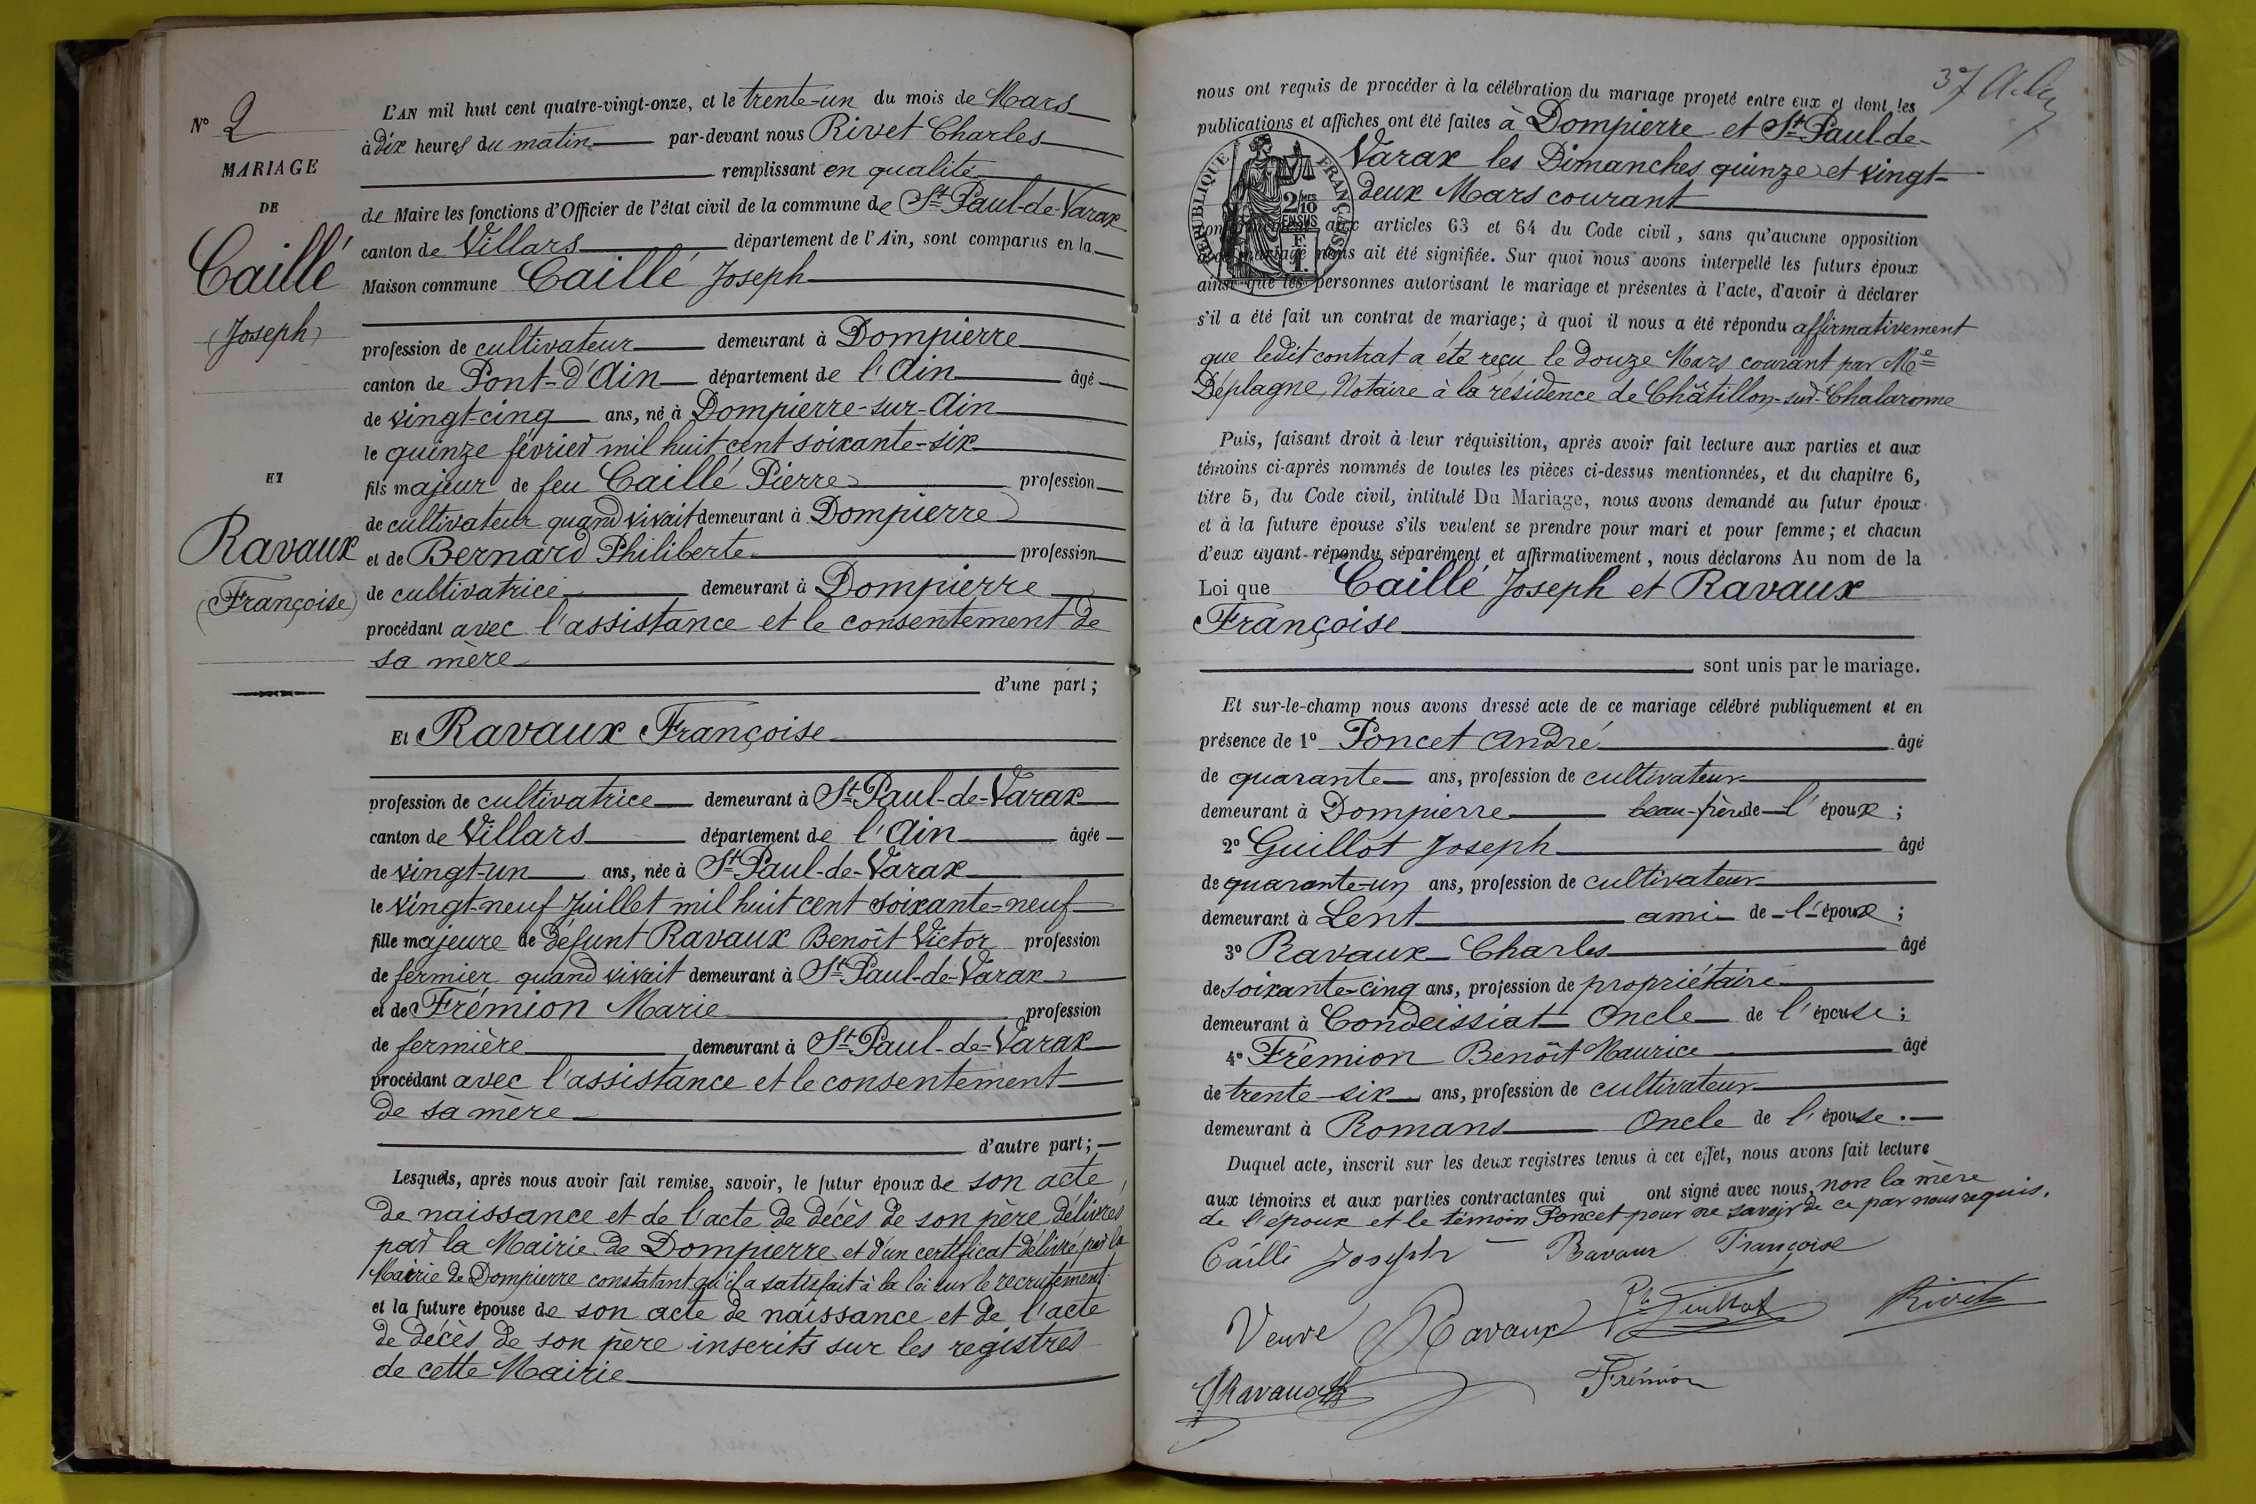 N° 2
MARIAGE
DE
Caillé
(Joseph)
ET
Ravaux
(Françoise)
L'AN mil huit cent quatre-vingt-onze, et le trente-un du mois de Mars
à dix heures du matin par-devant nous Rivet Charles
remplissant en qualité
de Maire les fonctions d'Officier de l'état civil de la commune de St Paul-de-Varax
canton de Villars département de l'Ain, sont comparus en la
Maison commune Caillé Joseph
profession de cultivateur demeurant à Dompierre
canton de Pont-d'Ain département de l'Ain âgé
de vingt-cinq ans, né à Dompierre-sur-Ain
le quinze février mil huit cent soixante-six
fils majeur de feu Caillé Pierre profession
de cultivateur quand vivait demeurant à Dompierre
et de Bernard Philiberte profession
de cultivatrice demeurant à Dompierre
procédant avec l'assistance et le consentement de
sa mère
d'une part;
Et Ravaux Françoise
profession de cultivatrice demeurant à St Paul-de-Varax
canton de Villars département de l'Ain âgée
de vingt-un ans, née à St Paul-de-Varax
le vingt-neuf Juillet mil huit cent soixante-neuf
fille majeure de défunt Ravaux Benoît Victor profession
de fermier quand vivait demeurant à St Paul-de-Varax
et de Frémion Marie profession
de fermière demeurant à St Paul-de-Varax
procédant avec l'assistance et le consentement
de sa mère
d'autre part;
Lesquels, après nous avoir fait remise, savoir, le futur époux de son acte
de naissance et de l'acte de décès de son père délivrés
par la Mairie de Dompierre et d'un certificat délivré par la
Mairie de Dompierre constatant qu'il a satisfait à la loi sur le recrutement
et la future épouse de son acte de naissance et de l'acte
de décès de son père inscrits sur les registres
de cette Mairie
37
nous ont requis de procéder à la célébration du mariage projeté entre eux et dont les
publications et affiches ont été faites à Dompierre et St Paul-de-
Varax les Dimanches quinze et vingt-
deux Mars courant
RÉPUBLIQUE FRANÇAISE
2/10 EN SUS
F 1.
aux articles 63 et 64 du Code civil, sans qu'aucune opposition
mariage nous ait été signifiée. Sur quoi nous avons interpellé les futurs époux
ainsi que les personnes autorisant le mariage et présentes à l'acte, d'avoir à déclarer
s'il a été fait un contrat de mariage; à quoi il nous a été répondu affirmativement
que ledit contrat a été reçu le douze Mars courant par Me
Déplagne, Notaire à la résidence de Châtillon-sur-Chalaronne
Puis, faisant droit à leur réquisition, après avoir fait lecture aux parties et aux
témoins ci-après nommés de toutes les pièces ci-dessus mentionnées, et du chapitre 6,
titre 5, du Code civil, intitulé Du Mariage, nous avons demandé au futur époux
et à la future épouse s'ils veulent se prendre pour mari et pour femme; et chacun
d'eux ayant répondu séparément et affirmativement, nous déclarons Au nom de la
Loi que Caillé Joseph et Ravaux
Françoise
sont unis par le mariage.
Et sur-le-champ nous avons dressé acte de ce mariage célébré publiquement et en
présence de 1° Poncet André âgé
de quarante ans, profession de cultivateur
demeurant à Dompierre beau-frère de l'époux;
2° Guillot Joseph âgé
de quarante-un ans, profession de cultivateur
demeurant à Lent ami de l'époux;
3° Ravaux Charles âgé
de soixante-cinq ans, profession de propriétaire
demeurant à Condeissiat Oncle de l'épouse;
4° Frémion Benoît Maurice âgé
de trente-six ans, profession de cultivateur
demeurant à Romans Oncle de l'épouse.
Duquel acte, inscrit sur les deux registres tenus à cet effet, nous avons fait lecture
aux témoins et aux parties contractantes qui ont signé avec nous, non la mère
de l'époux et le témoin Poncet pour ne savoir de ce par nous requis.
Caillé Joseph Ravaux Françoise
Veuve Ravaux Guillot Rivet
Ravaux Frémion